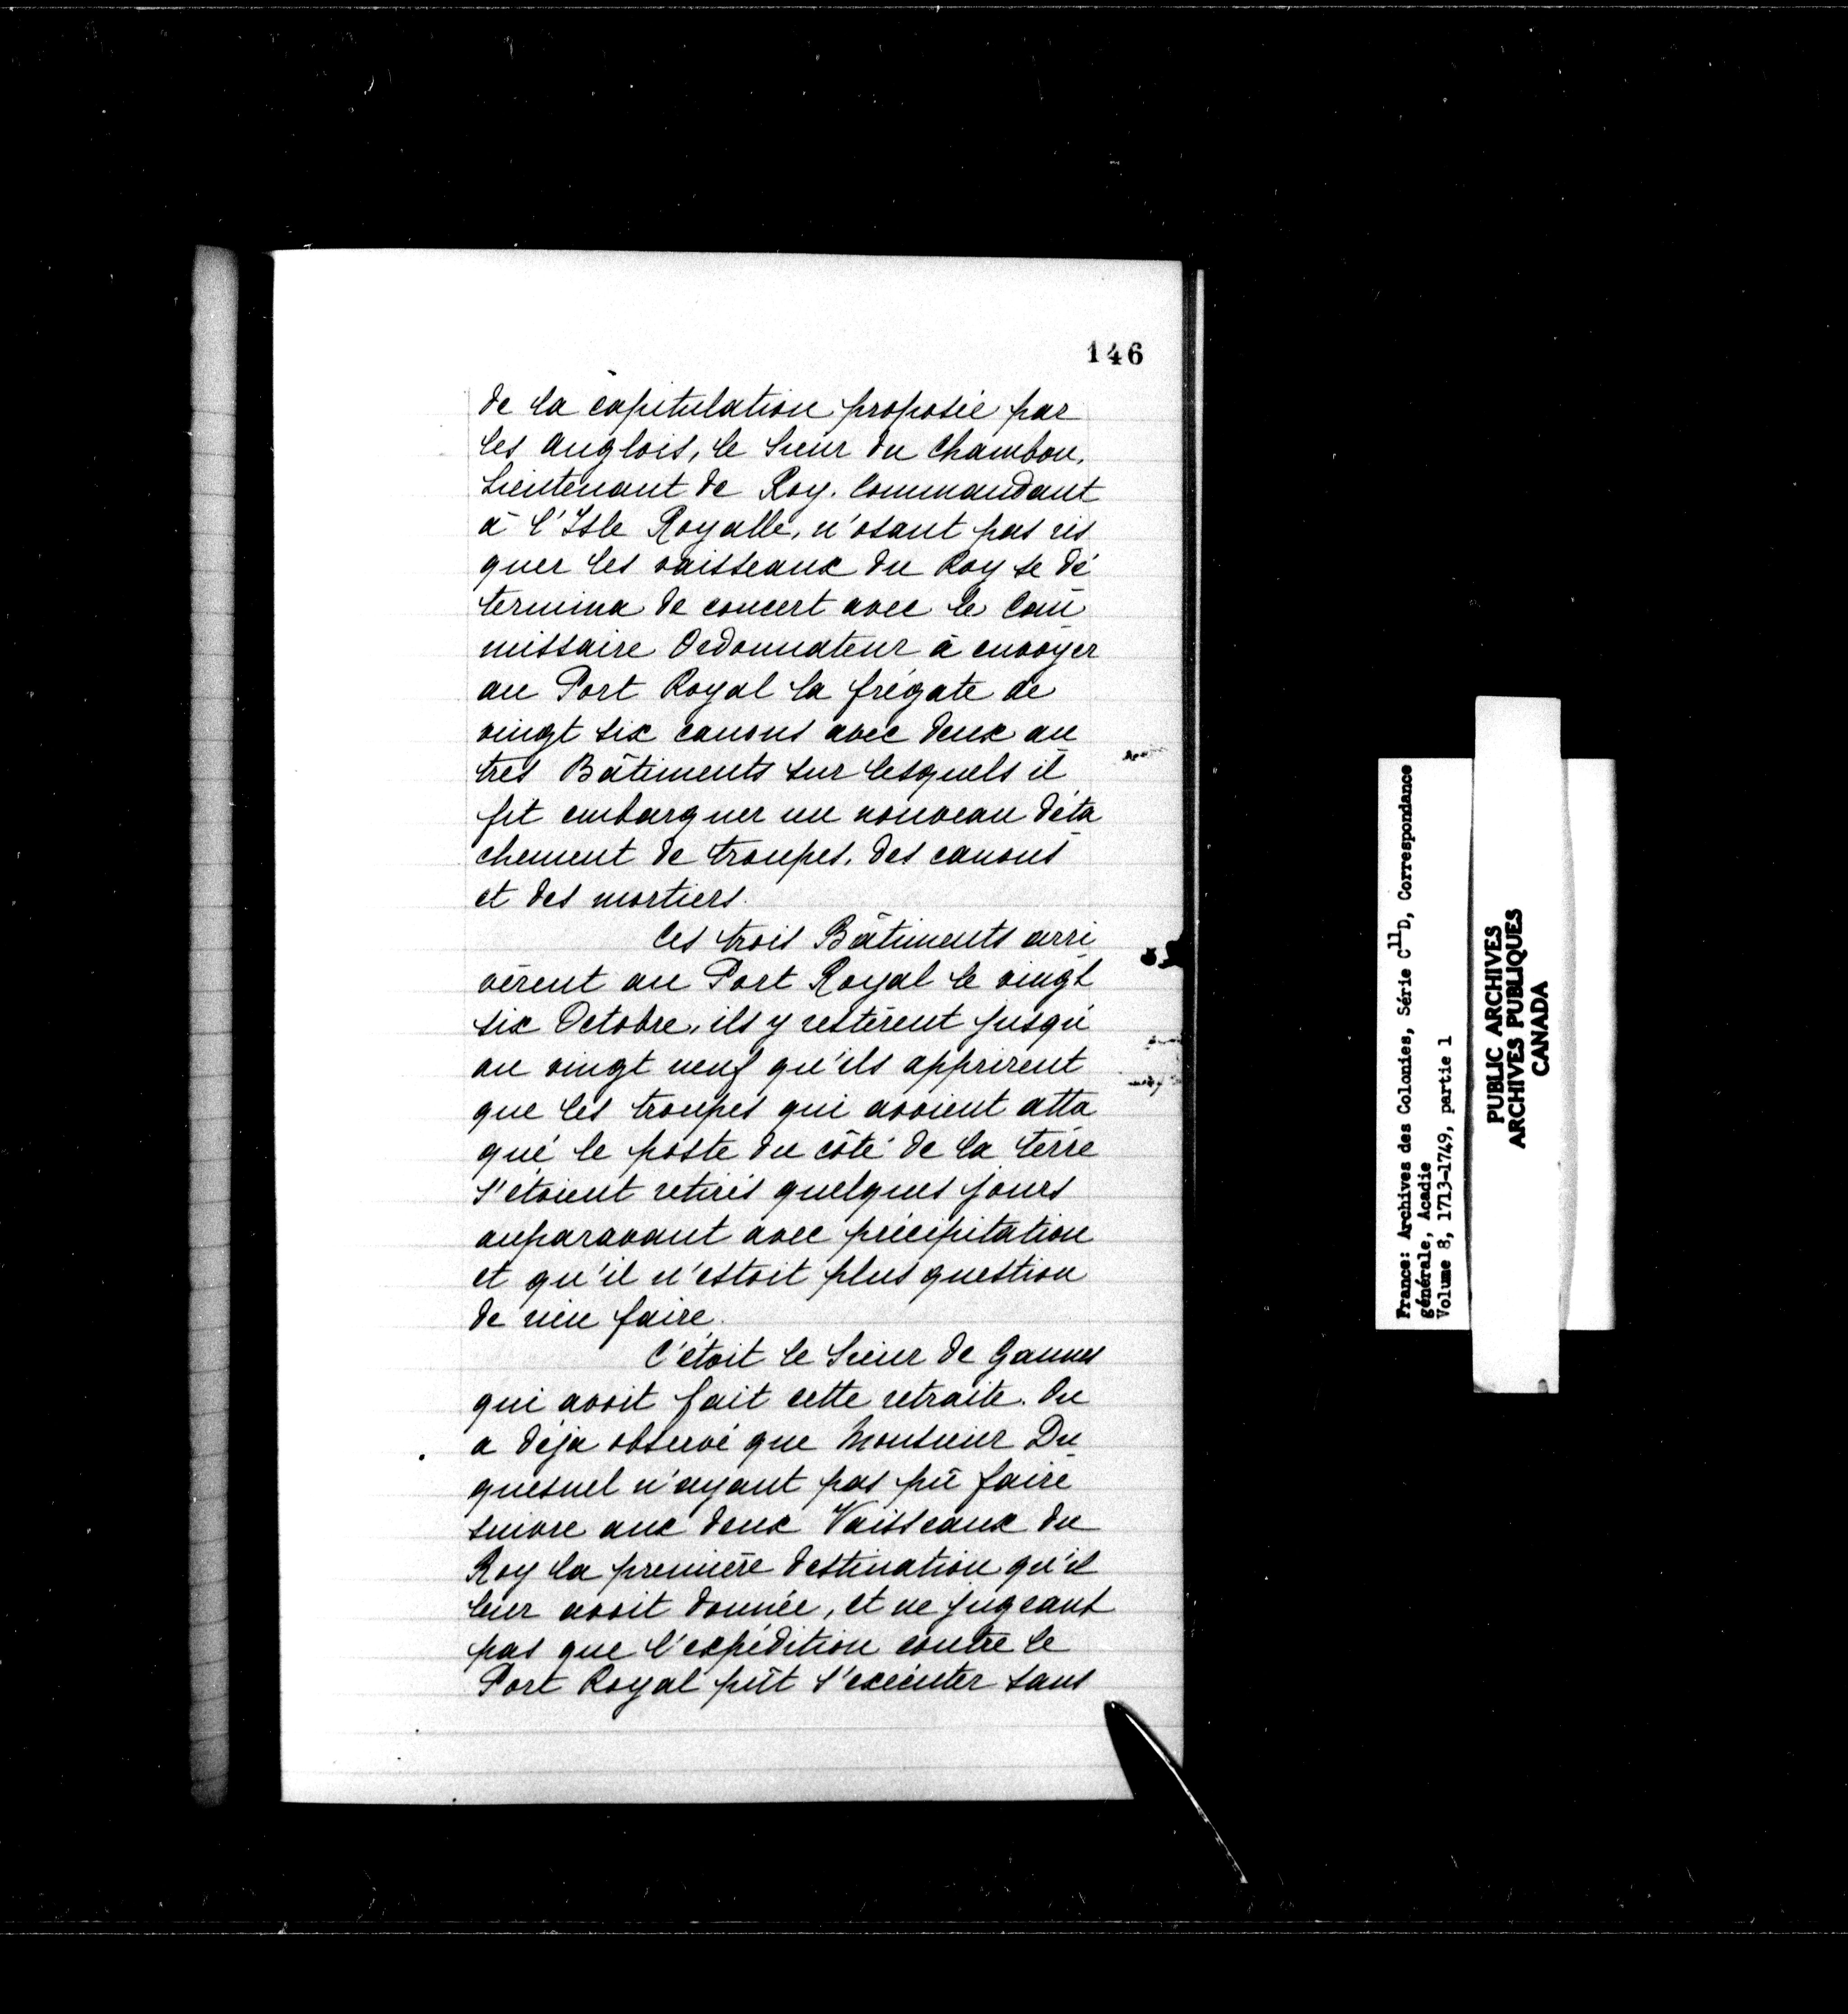 146
de la capitulation proposée par
les Anglois, le Sieur du Chambon,
Lieutenant de Roy. Commandant
à l'Isle Royalle, n'osant pas ris
quer les vaisseaux du Roy se dé
termina de concert avec le Com
missaire Ordonnateur à envoyer
au Port Royal la frégate de
vingt six canons avec deux au
tres Bâtiments sur lesquels il
fit embarquer un nouveau déta
chement de troupes, des canons
et des mortiers.
Ces trois Bâtiments arri
vèrent au Port Royal le vingt
six Octobre, ils y restèrent jusqu'
au vingt neuf qu'ils apprirent
que les troupes qui avoient atta
qué le poste du côté de la terre
s'étoient retirés quelques jours
auparavant avec précipitation
et qu'il n'estoit plus question
de rien faire.
C'étoit le Sieur de Gannes
qui avoit fait cette retraite. On
a déja observé que Monsieur Du
quesnel n'ayant pas pû faire
suivre aux deux Vaisseaux du
Roy la première destination qu'il
leur avoit donnée, et ne jugeant
pas que l'expédition contre le
Port Royal pût s'exécuter sans
France: Archives des Colonies, Série C11D, Correspondance
générale, Acadie
Volume 8, 1713-1749, partie 1
PUBLIC ARCHIVES
ARCHIVES PUBLIQUES
CANADA